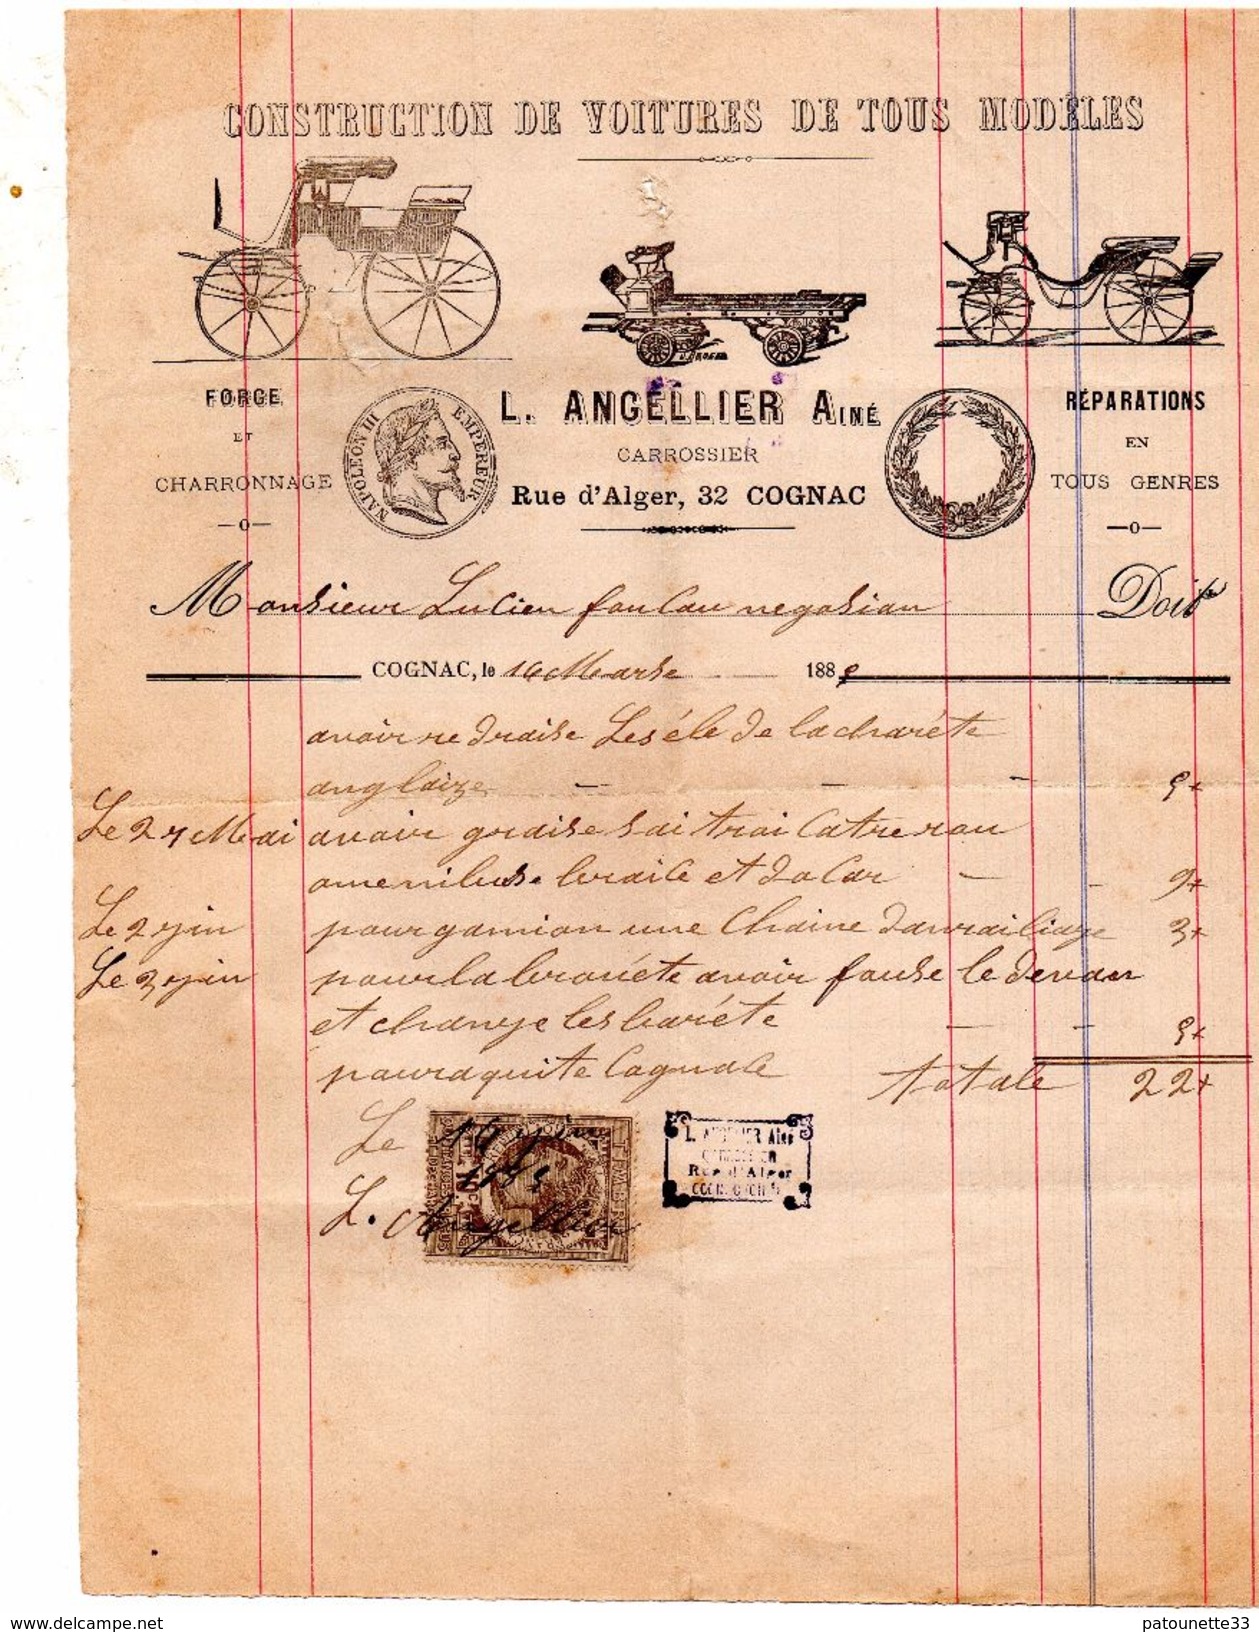 CONSTRUCTION DE VOITURES DE TOUS MODÈLES
FORGE
ET
CHARRONNAGE
NAPOLEON III EMPEREUR
L. ANGELLIER AINÉ
CARROSSIER
Rue d'Alger, 32 COGNAC
RÉPARATIONS
EN
TOUS GENRES
Monsieur Lucien foucau negosian Doit
COGNAC, le 16 Marse 188
avoir redraise Les éle de la charéte
anglaize
Le 27 Mai avoir graise sai trai Catre rou
et
Le 2 jin pour gamion une Chaine danrailiage 3+
Le 3 jin pour la brouéte avoir fouse le devan
et change les baréte
pour aquite Cognace totale 22+
Le 16 jin
188
L. Angellier
TIMBRE
L. ANGELLIER Ainé
CARROSSIER
Rue d'Alger
COGNAC
www.delcampe.net
patounette33